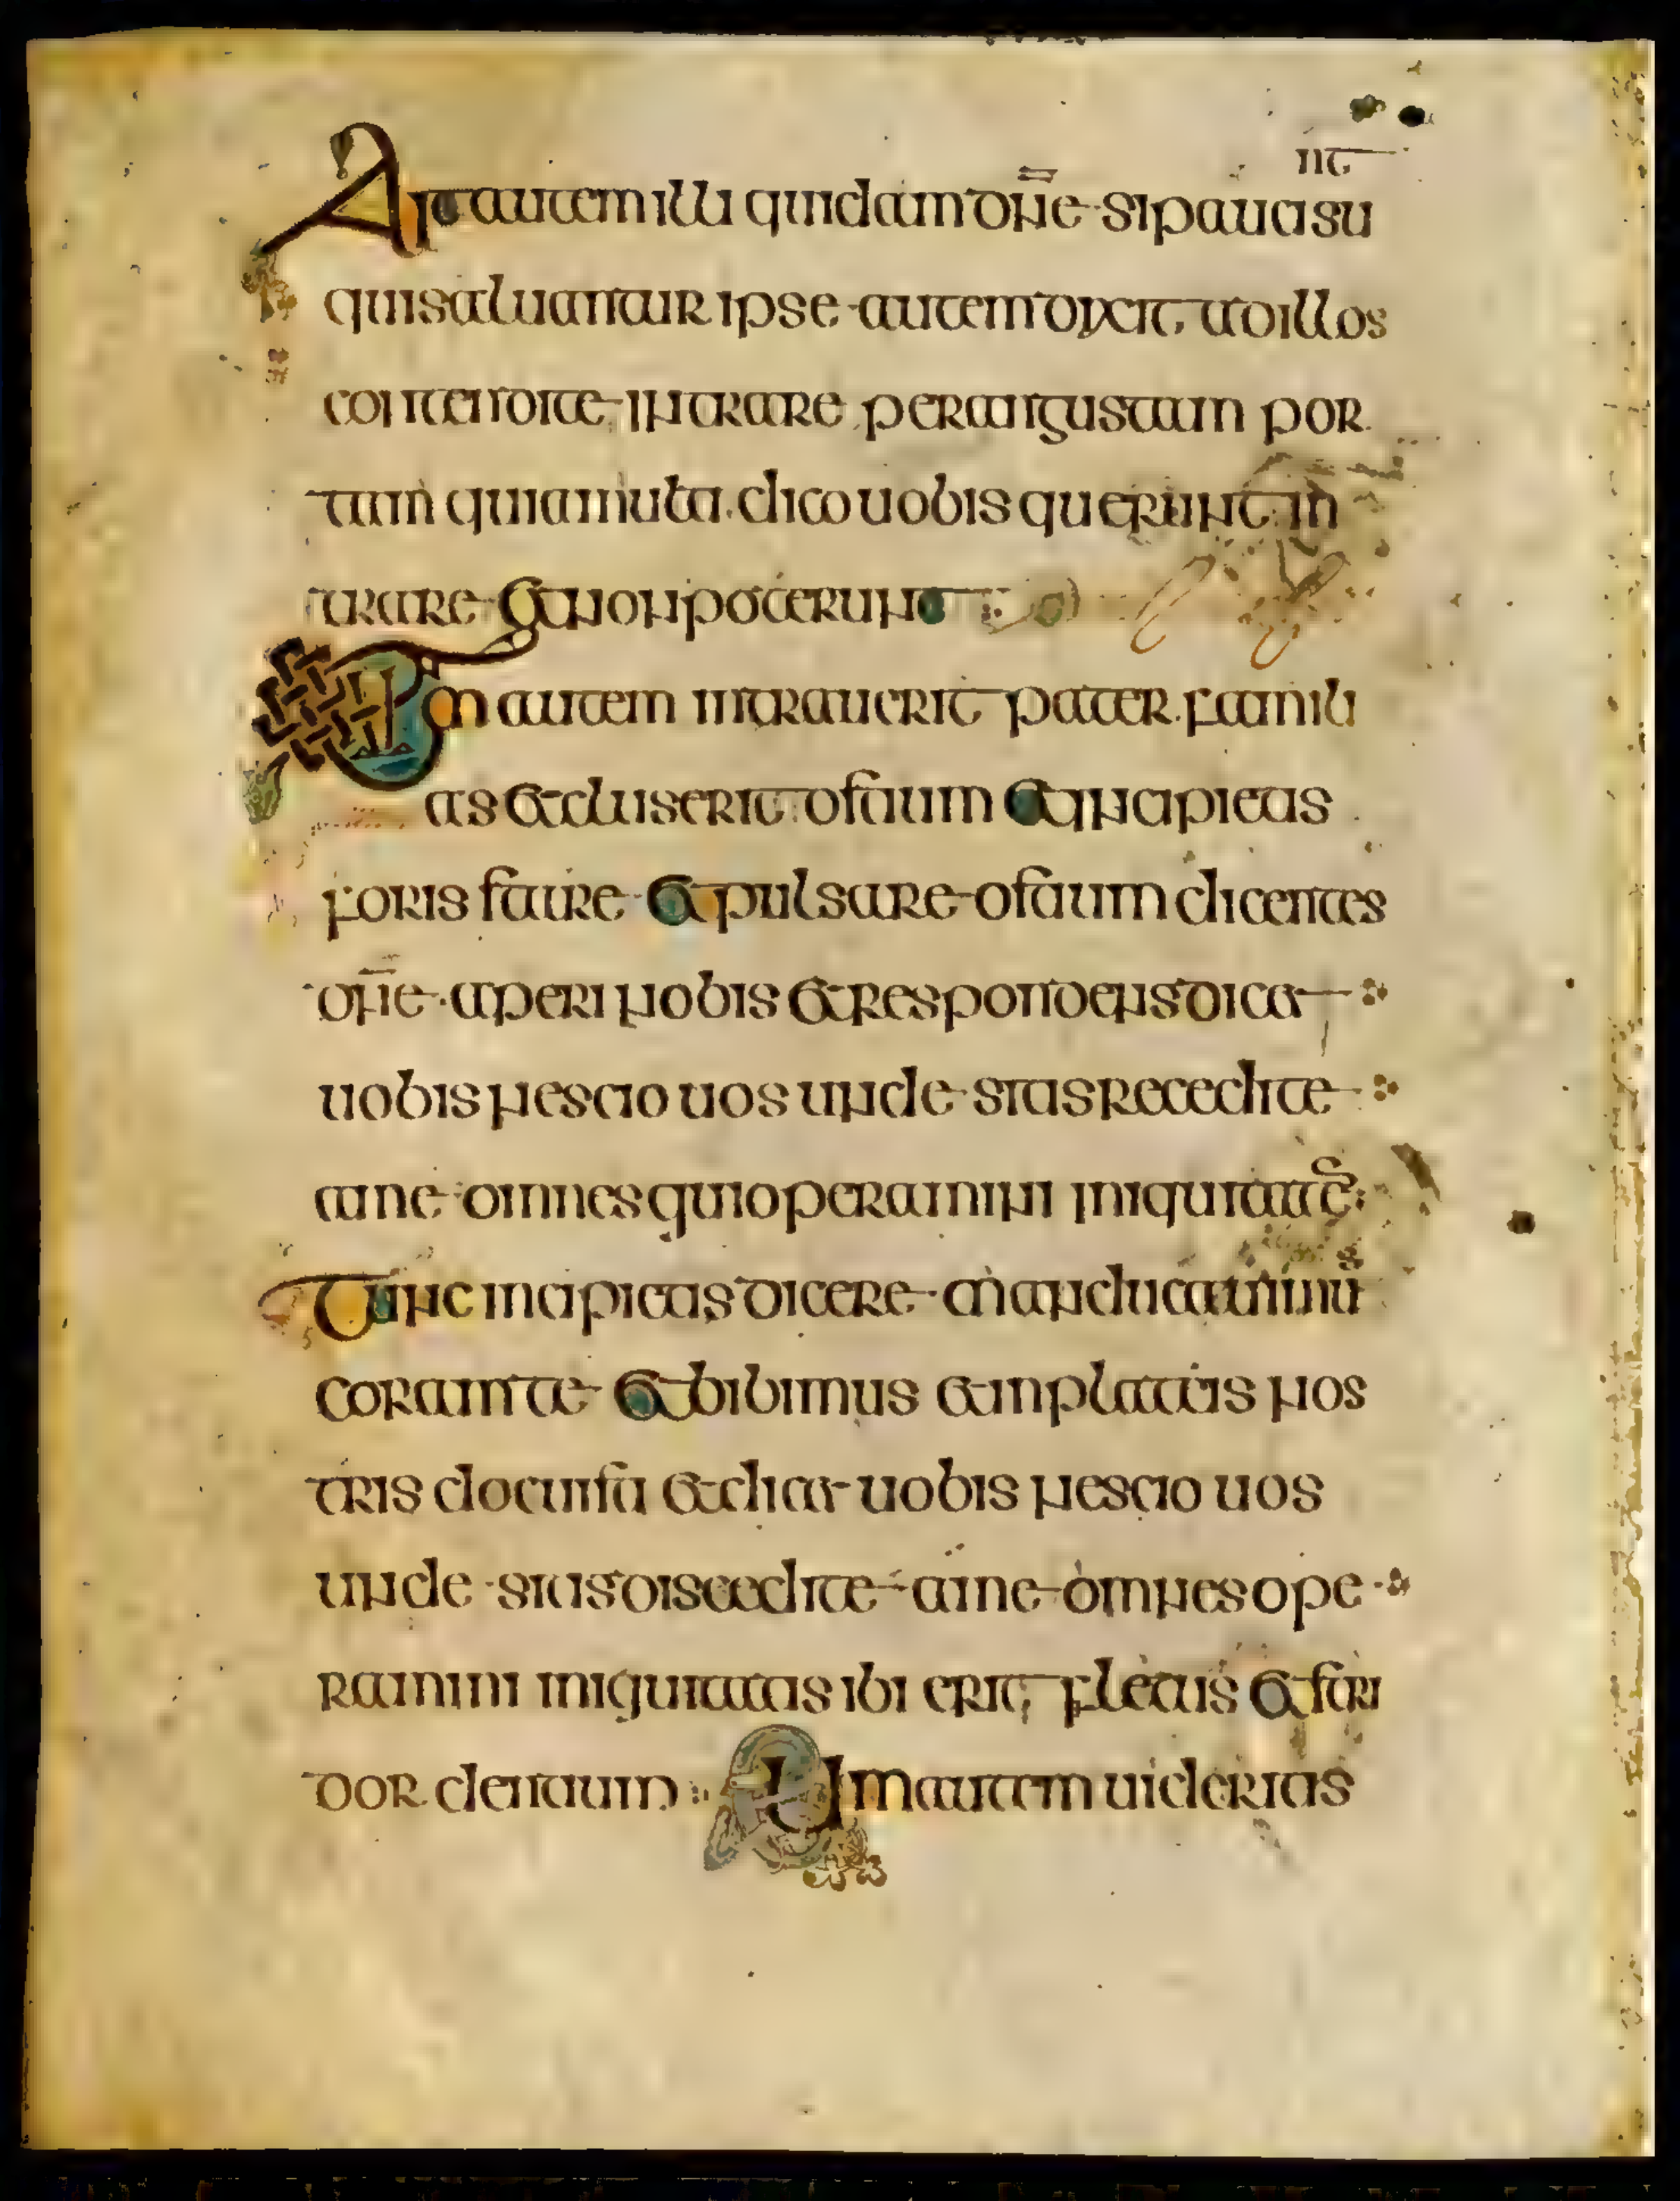 nt
Ait autem illi quidam dn̄e si pauci su
qui saluantur ipse autem dixit ad illos
contendite intrare per angustam por
tam quia multi dico uobis querunt in
trare et non poterunt
Cum autem intrauerit pater famili
as et cluserit ostium et incipietis
foris stare et pulsare ostium dicentes
dn̄e aperi nobis et respondens dicet
uobis nescio uos unde sitis recedite
a me omnes qui operamini iniquitates
Tunc incipietis dicere manducauimus
coram te et bibimus et in plateis nos
tris docuisti et dicet uobis nescio uos
unde sitis discedite a me omnes ope
ramini iniquitatis ibi erit fletus et stri
dor dentium Cum autem uideritis